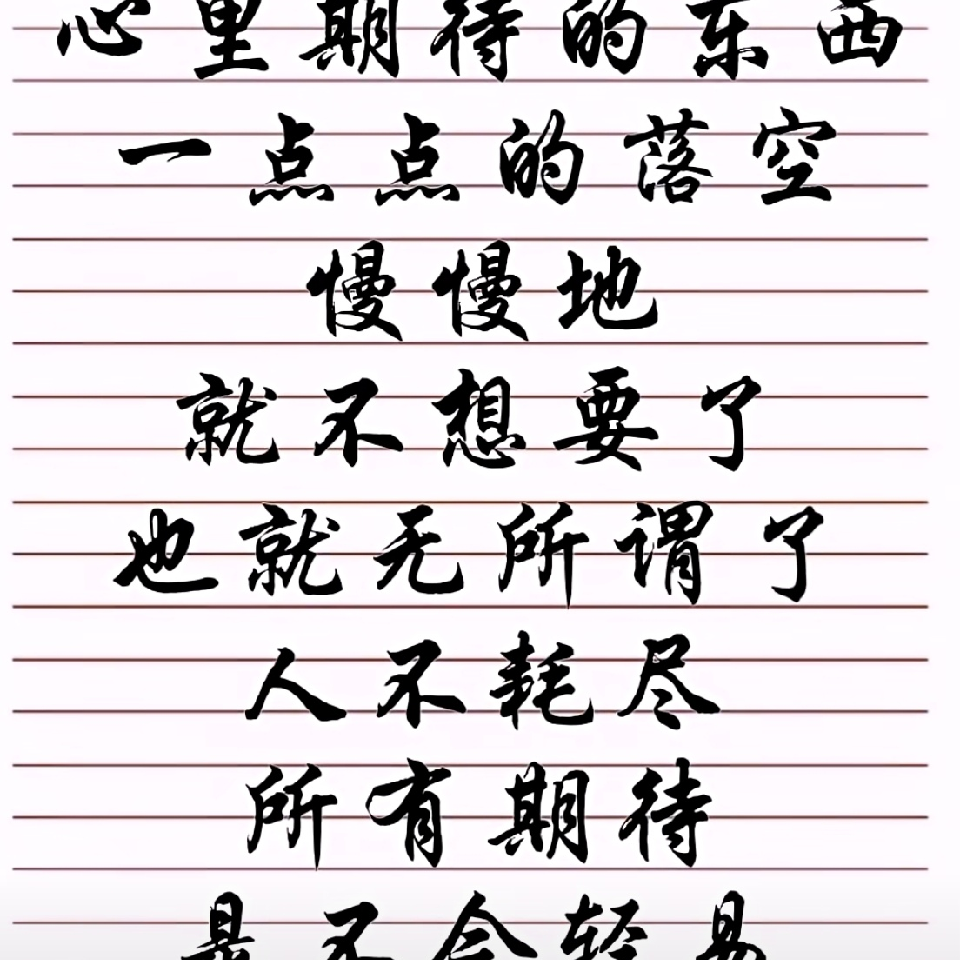 心里期待的东西
一点点的落空
慢慢地
就不想要了
也就无所谓了
人不耗尽
所有期待
是不会轻易